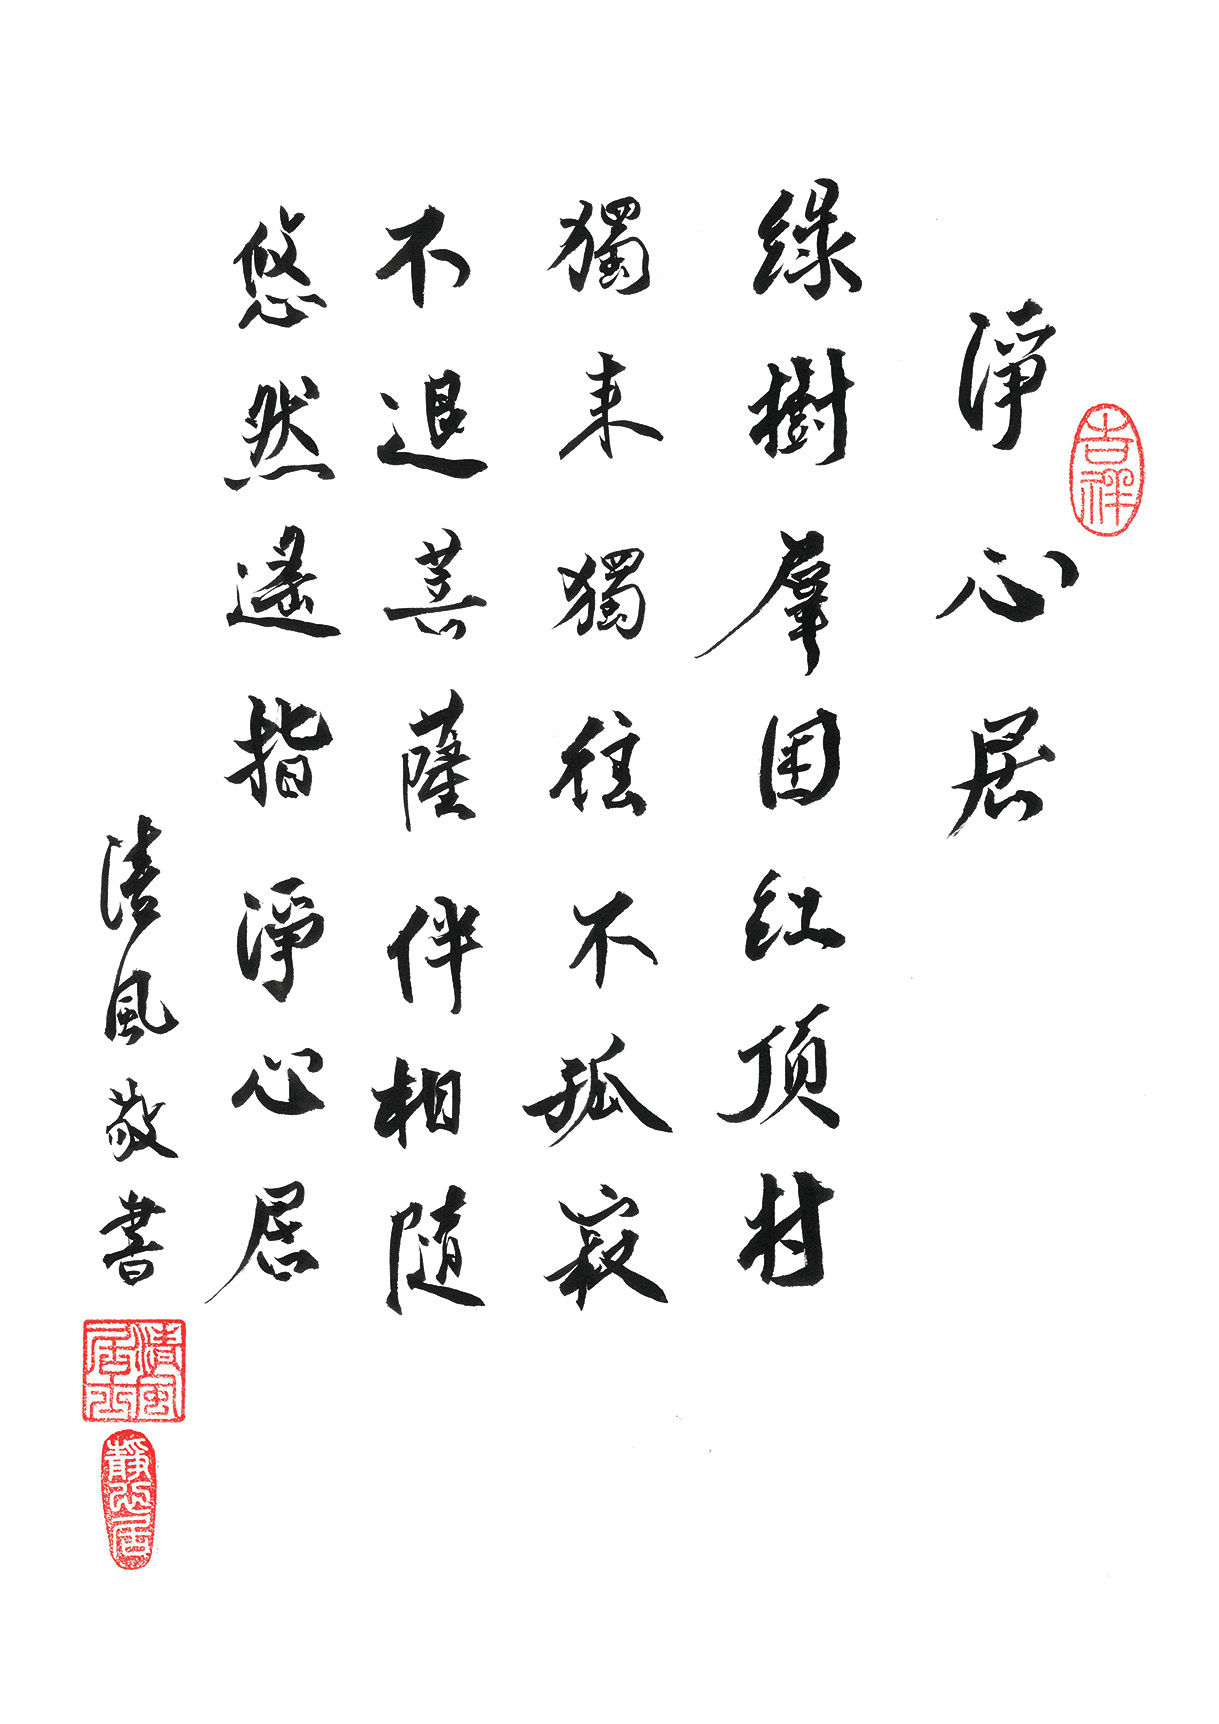 淨心居
吉祥
綠樹羣囯紅顶村
獨來獨往不孤寂
不退菩薩伴相隨
悠然遥指淨心居
清風敬書
清風居士
靜心居